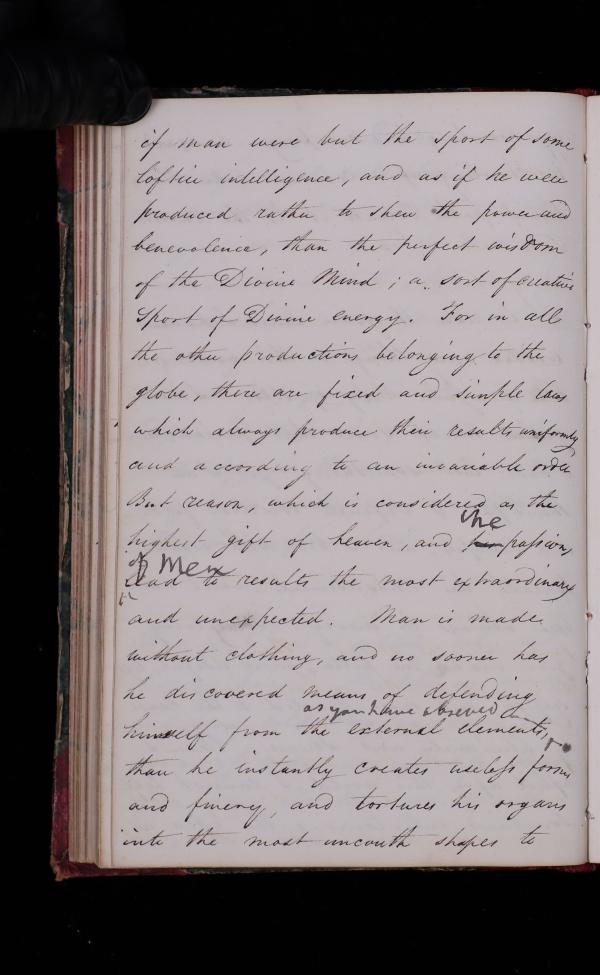 if man were but the sport of some
loftier intelligence, and as if he were
produced rather to shew the power and
benevolence, than the perfect wisdom
of the Divine Mind; a sort of creative
sport of Divine energy. For in all
the other productions belonging to the
globe, there are fixed and simple laws
which always produce their results uniformly
and according to an invariable order
But reason, which is considered as the
the
highest gift of heaven, and passions
of Men
lead to results the most extraordinary
and unexpected. Man is made
without clothing, and no sooner has
he discovered means of defending
as you have observed
himself from the external elements,
than he instantly creates useless forms
and finery, and tortures his organs
into the most uncouth shapes to